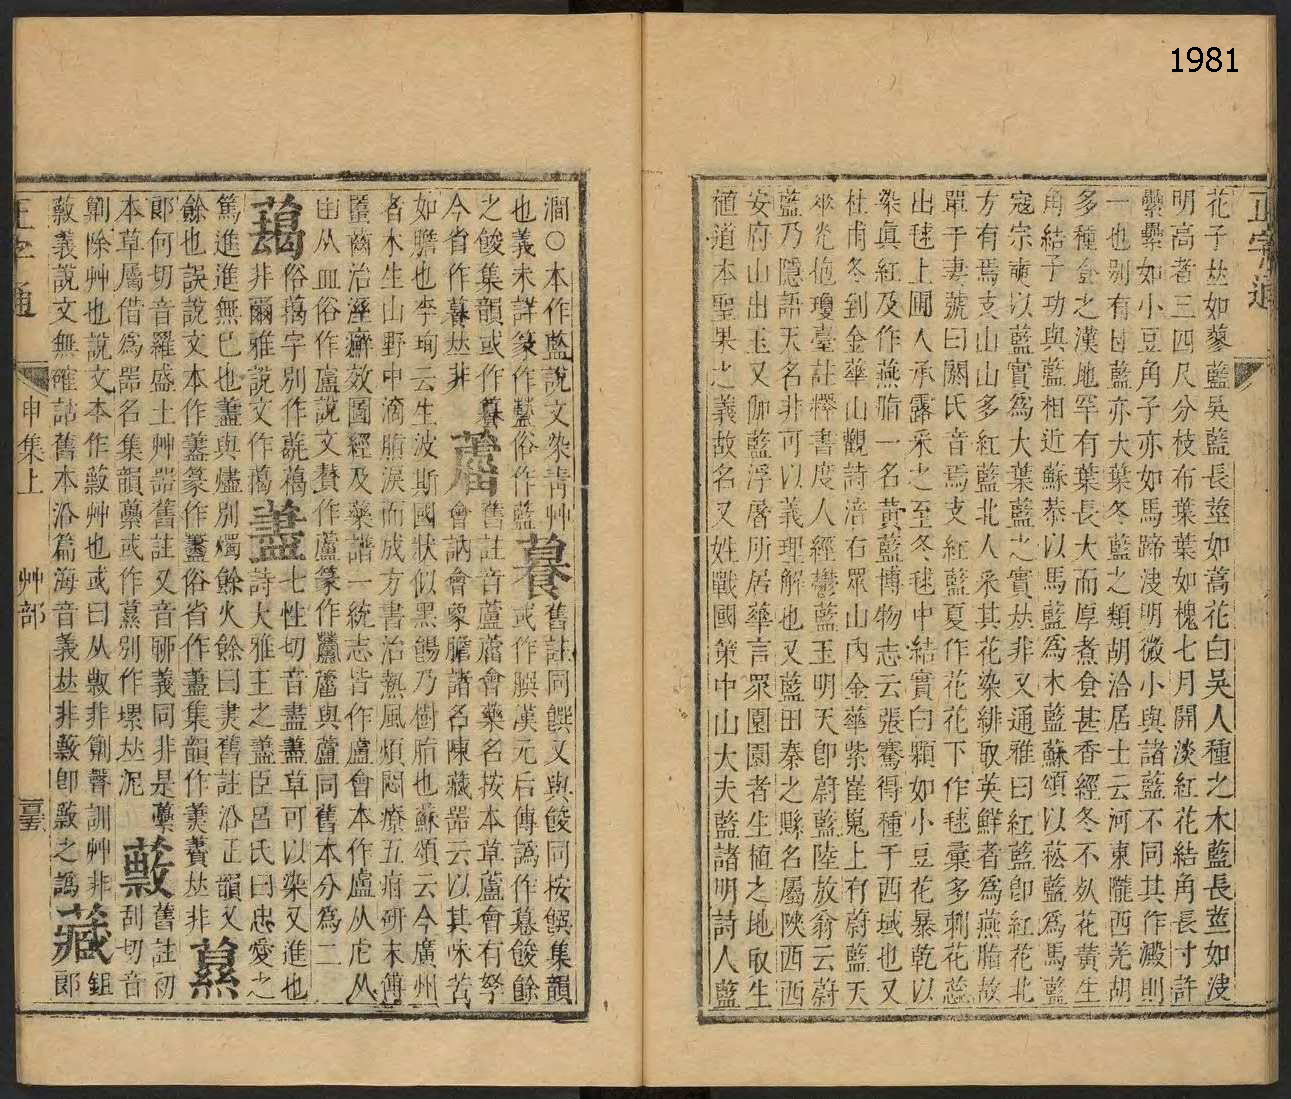 1981
正字通
花子𠀤如蓼藍吳藍長莖如蒿花白吳人種之木藍長莖如決
明高者三四尺分枝布葉葉如槐七月開淡紅花結角長寸許
纍纍如小豆角子亦如馬蹄決明微小與諸藍不同其作澱則
一也別有甘藍亦大葉冬藍之類胡洽居士云河東隴西羌胡
多種食之漢地罕有葉長大而厚煮食甚香經冬不死花黃生
角結子功與藍相近蘇恭以馬藍爲木藍蘇頌以菘藍爲馬藍
寇宗奭以藍實爲大葉藍之實𠀤非又通雅曰紅藍卽紅花北
方有焉支山山多紅藍北人采其花染緋取英鮮者爲燕脂故
單于妻號曰閼氏音焉支紅藍夏作花花下作毬彙多刺花蕊
出毬上圃人承露采之至冬毬中結實白顆如小豆花暴乾以
染眞紅及作燕脂一名黃藍博物志云張騫得種于西域也又
杜甫冬到金華山觀詩涪右眾山內金華紫崔嵬上有蔚藍天
𠂹光抱瓊臺註釋書度人經鬱藍玉明天卽蔚藍陸放翁云蔚
藍乃隱語天名非可以義理解也又藍田秦之縣名屬陝西西
安府山出玉又伽藍浮屠所居華言眾園園者生植之地取生
植道本聖果之義故名又姓戰國策中山大夫藍諸明詩人藍
澗○本作藍說文染靑艸 𦿊 舊註同饌又與餕同按饌集韻
也義未詳篆作藍俗作藍 或作膳漢元后傳譌作𦿊餕餘
之餕集韻或作籑 舊註音蘆藘會藥名按本草蘆會有拏
今省作𦿊𠀤非 藘 會訥會象膽諸名陳藏器云以其味苦
如膽也李珣云生波斯國狀似黑餳乃樹脂也蘇頌云今廣州
者木生山野中滴脂淚而成方書治熱風煩悶療五疳研末傅
𧏾齒治溼癬效圖經及藥譜一統志皆作蘆會本作盧从虍从
甾从皿俗作盧說文𧷎作蘆篆作蘆藘與蘆同舊本分為二
𧃲 俗藒字別作𧃲藒 藎 七性切音盡藎草可以染又進也
非爾雅說文作藒 詩大雅王之藎臣呂氏曰忠愛之
篤進進無已也藎與燼別燭餘火餘曰㶳舊註沿正韻又
餘也誤說文本作藎篆作藎俗省作藎集韻作𧂐藚𠀤非 藁 舊註初
郞何切音羅盛土艸器舊註又音聊義同非是藁
本草屬借爲器名集韻藁或作藁別作㙼𠀤泥 藙 刮切音
劋除艸也說文本作藙艸也或曰从敹非劋聲訓艸非 鉏
藙義說文無確詁舊本沿篇海音義𠀤非藙卽藙之譌 藏 郞
正字通
申集上
艸部